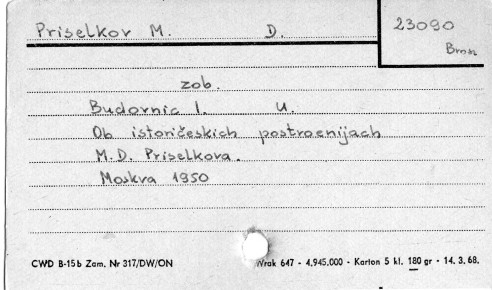 Priselkov M. D.
23090
Bros
zob.
Budovnic I. U.
Ob istoričeskich postroenijach
M.D. Priselkova.
Moskva 1950
CWD B-15b Zam. Nr 317/DW/ON
Wrak 647 - 4.945.000 - Karton 5 kl. 180 gr - 14. 3. 68.